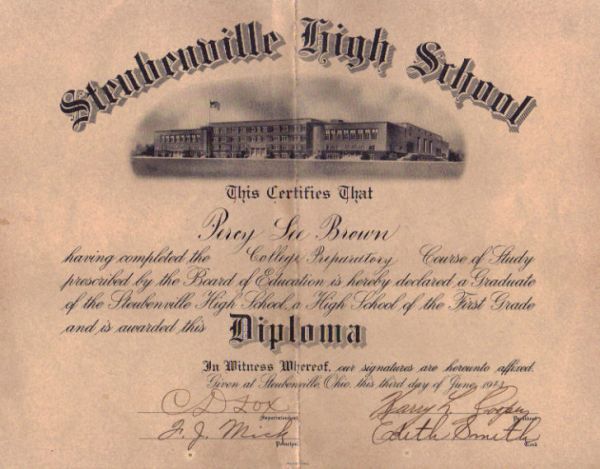 Steubenville High School
This Certifies That
Percy Lee Brown
having completed the College Preparatory Course of Study
prescribed by the Board of Education is hereby declared a Graduate
of the Steubenville High School, a High School of the First Grade
and is awarded this Diploma
In Witness Whereof, our signatures are hereunto affixed.
Given at Steubenville, Ohio, this third day of June
C D Fox Harry L. Cooper
Superintendent President
F. J. Mick Edith Smith
Principal Clerk